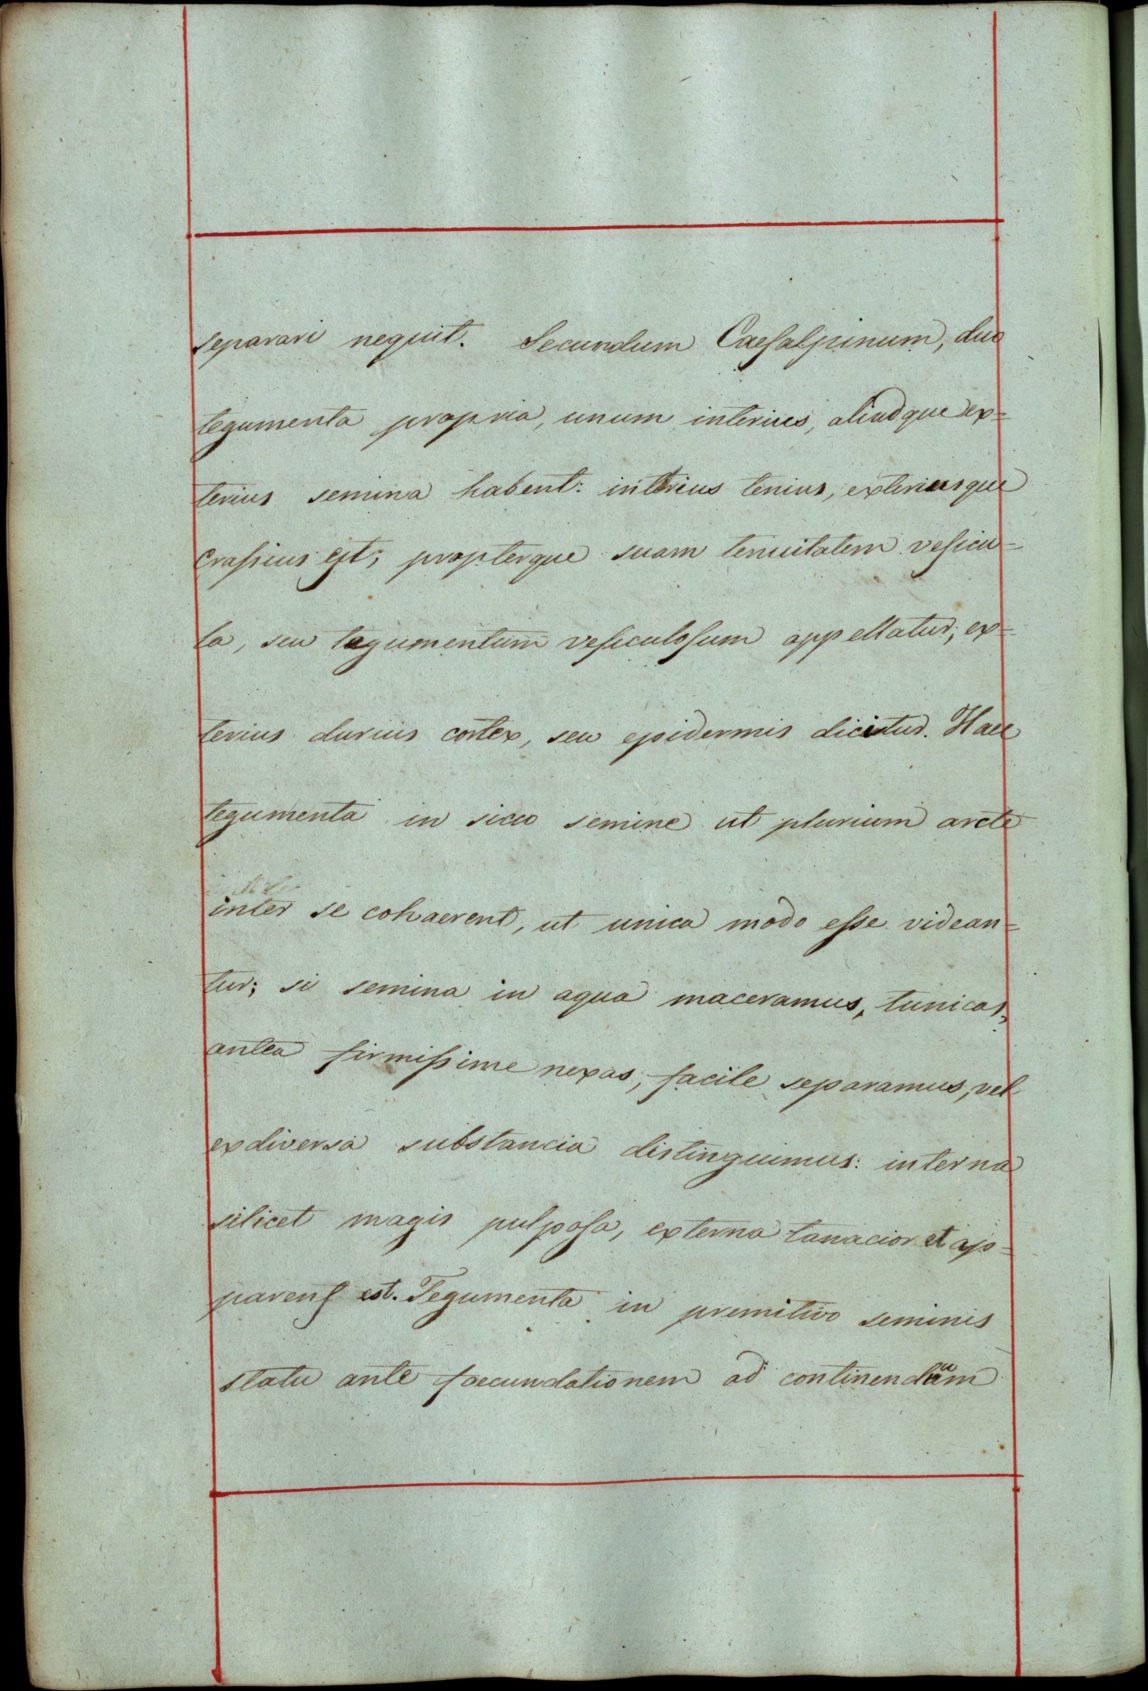 separari nequit. Secundum Caesalpinum, duo
tegumenta propria, unum interius, aliudque ex=
terius semina habent: interius tenius, exteriusque
crassius est; propterque suam tenuitatem vesicu=
la, seu tegumentum vesiculosum appellatur; ex=
terius durius cortex, seu epidermis dicitur. Haec
tegumenta in sicco semine ut plurium arcte
inter se cohaerent, ut unica modo esse videan=
tur; si semina in aqua maceramus, tunicas,
antea firmissime nexas, facile separamus, vel
ex diversa substancia distinguimus: interna
silicet magis pulposa, externa tanacior et ap=
parens est. Tegumenta in premitivo seminis
statu ante faecundationem ad continendum